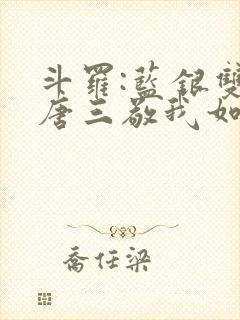 斗羅:藍銀雙
唐三敬我如
喬任梁